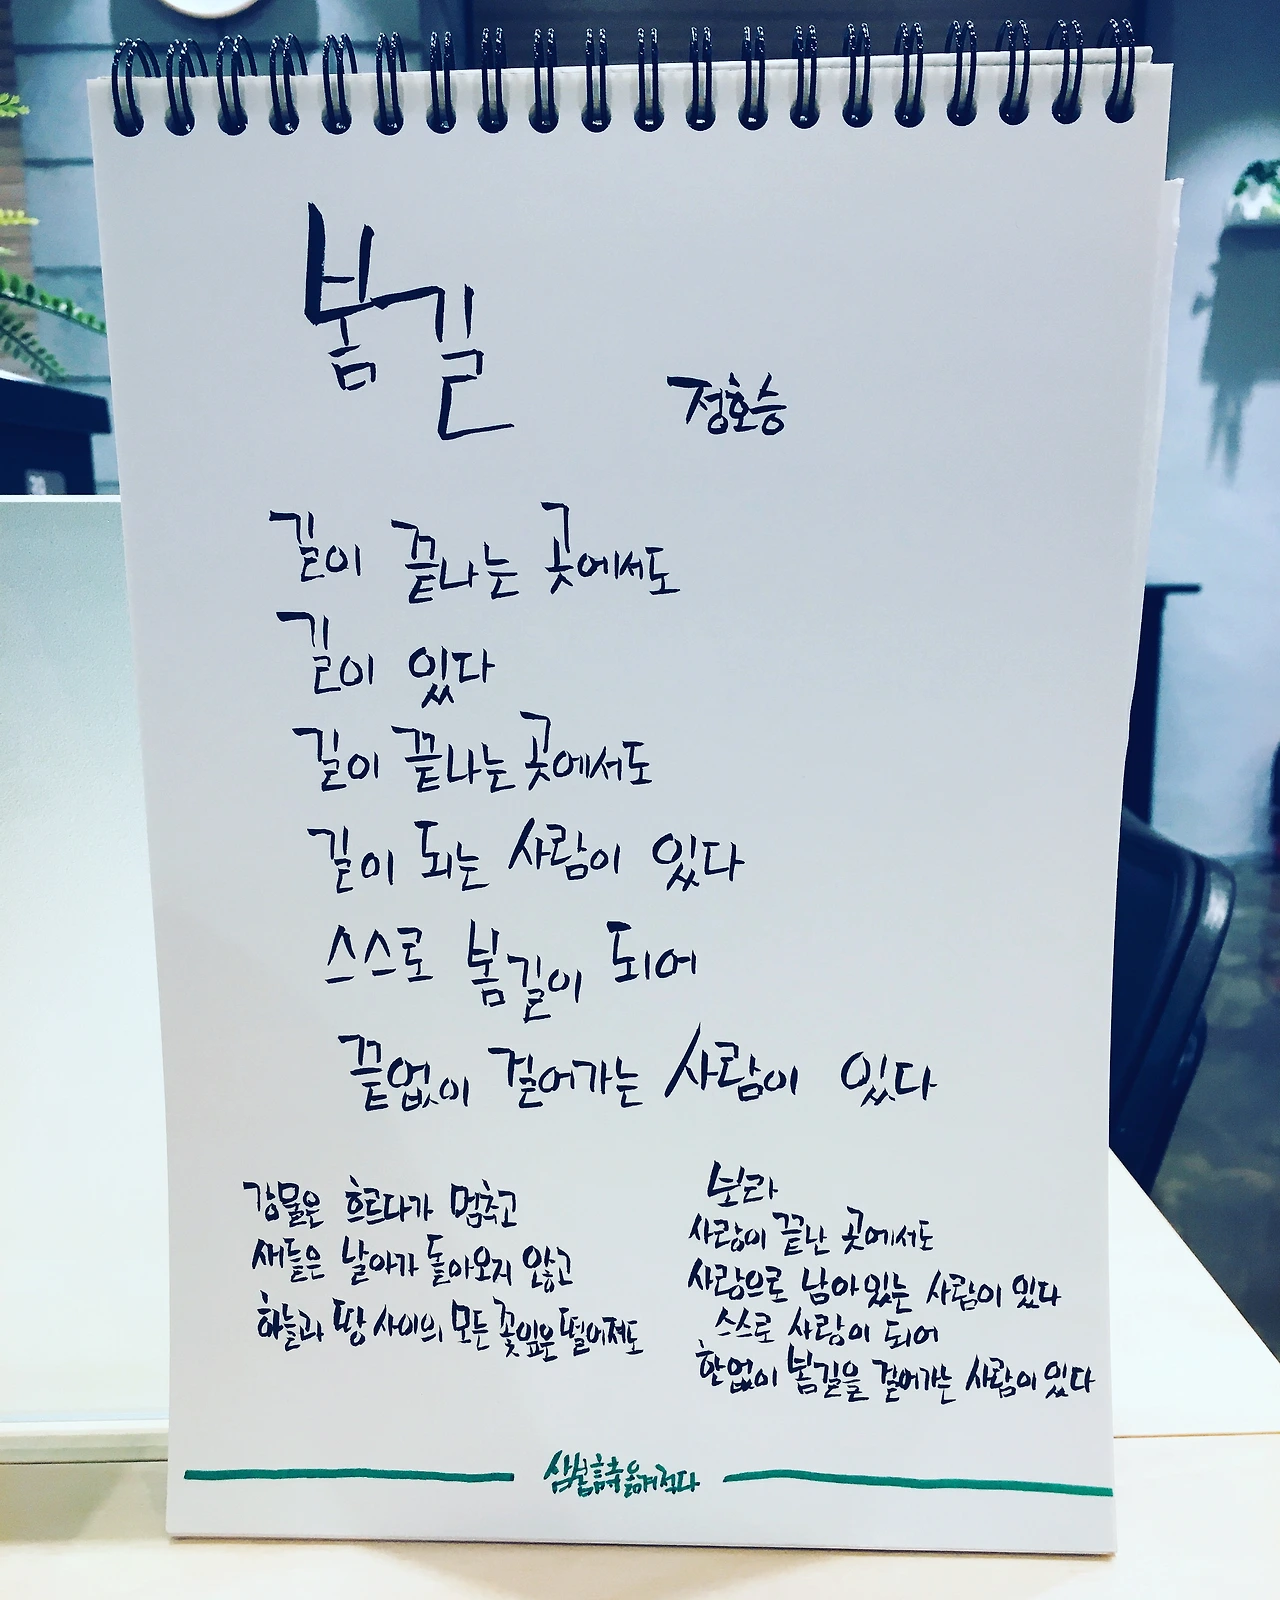 봄길
정호승
길이 끝나는 곳에서도
길이 있다
길이 끝나는 곳에서도
길이 되는 사람이 있다
스스로 봄길이 되어
끝없이 걸어가는 사람이 있다
강물은 흐르다가 멈추고
새들은 날아가 돌아오지 않고
하늘과 땅 사이의 모든 꽃잎은 떨어져도
보라
사랑이 끝난 곳에서도
사랑으로 남아있는 사람이 있다
스스로 사랑이 되어
한없이 봄길을 걸어가는 사람이 있다
옮겨적다